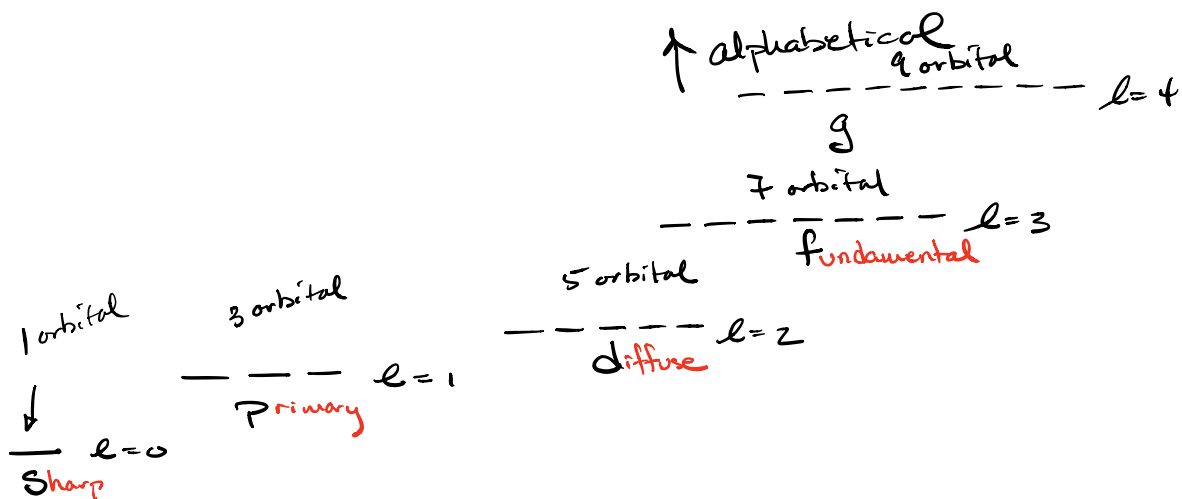 ↑ alphabetical
9 orbital
l=4
g
7 orbital
l=3
fundamental
5 orbital
l=2
diffuse
3 orbital
l=1
primary
1 orbital
↓
l=0
sharp